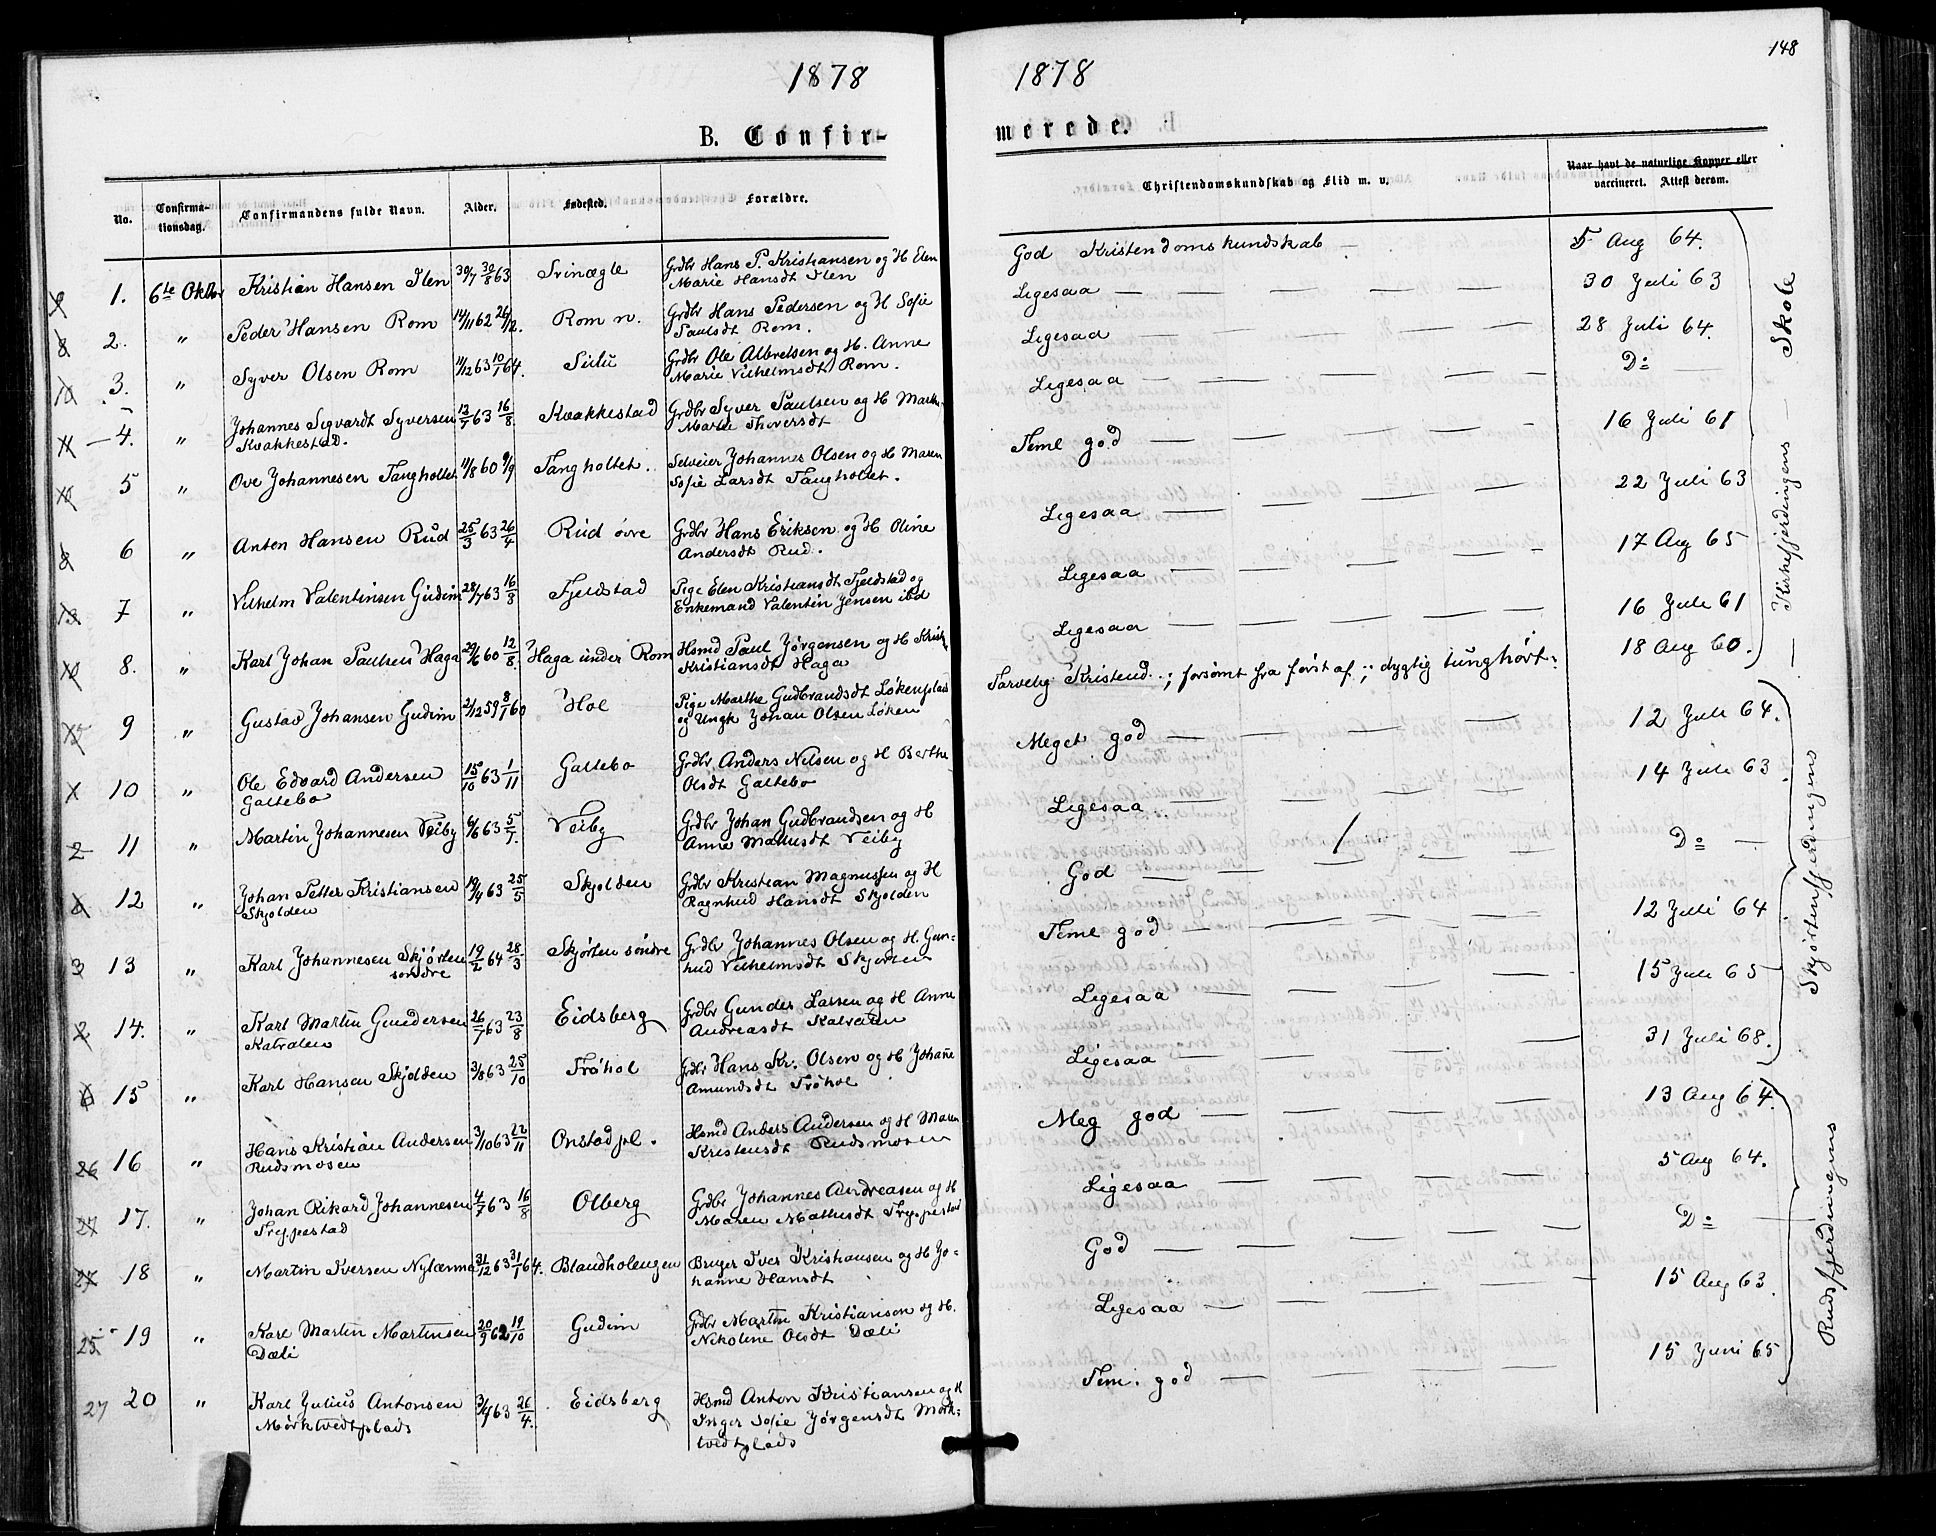 1878
B. Confir-
No.
Confirma-
tionsdag.
Confirmandens fulde Navn.
Alder.
Fødested.
Forældre.
1. 6te Oktbr Kristian Hansen Ilen 30/7 30/8 63 Svinægle Grdbr Hans P. Kristiansen og H Elen
Marie Hansdt Ilen
2. " Peder Hansen Rom 14/11 62 26/12. Rom n. Grdbr Hans Pedersen og H Sofie
Paulsdt Rom.
3. " Syver Olsen Rom 11/12 63 10/1 64. Grdbr Ole Albretsen og H. Anne
Marie Vilhelmsdt Rom.
4. " Johannes Sigvardt Syversen 13/7 63 16/8. Kvakkestad Grdbr Syver Paulsen og H Marthe
Kvakkestad. Marie Thoversdt
5 " Ove Johannesen Tangholtet 11/8 60 9/9 Tangholtet. Selveier Johannes Olsen og H Maren
Sofie Larsdt Tangholtet.
6 " Anton Hansen Rud 25/3 63 26/4 Rud øvre Grdbr Hans Eriksen og H Oline
Andersdt Rud.
7 " Vilhelm Valentinsen Gudim 28/7 63 16/8 Fjeldstad Pige Elen Kristiansdt Fjeldstad og
Enkemand Valentin Jensen ibd
8. " Karl Johan Paulsen Haga 29/6 60 12/8. Haga under Rom Hsmd Paul Jørgensen og H Krist.
Kristiansdt Haga
9 " Gustav Johansen Gudim 2/12 59 8/1 60 Hol Pige Marthe Gudbrandsdt Løkenplads
og Ungk Johan Olsen Løken
10 " Ole Edvard Andersen 15/10 63 1/11 Galtebo Grdbr Anders Nilsen og H Berthe
Galtebo Olsdt Galtebo
11 " Martin Johannesen Veiby 6/6 63 5/7. Veiby Grdbr Johan Gudbrandsen og H
Anne Mathisdt Veiby
12 " Johan Petter Kristiansen 19/4 63 25/5 Skjolden Grdbr Kristian Magnussen og H
Skjolden Ragnhild Hansdt Skjolden
13 " Karl Johannesen Skjørten 19/2 64 28/3 Skjørten søndre Grdbr Johannes Olsen og H. Gun=
søndre hild Vilhelmsdt Skjørten
14. " Karl Martin Gundersen 26/7 63 23/8 Eidsberg Grdbr Gunder Larsen og H Anne
Kalvalen Andreasdt Kalvalen
15 " Karl Hansen Skjolden 3/8 63 25/10 Trøhol Grdbr Hans Kr. Olsen og H Johane
Amundsdt Trøhol
16 " Hans Kristian Andersen 3/10 63 22/11 Onstadpl. Hsmd Anders Andersen og H Maren
Rudsmosen Kristensdt Rudsmosen
17. " Johan Rikard Johannesen 4/7 63 16/8 Olberg Grdbr Johannes Andreasen og H
Tryppestad Maren Mathisdt Tryppestad
18 " Martin Iversen Nylænna 31/12 63 31/1 64. Blandholengen Bruger Iver Kristiansen og H Jo=
hanne Hansdt
25 19 " Karl Martin Martinsen 20/9 62 19/10 Gudim Grdbr Martin Kristianson og H.
Dæli Nikoline Olsdt Dæli
27 20 " Karl Julius Antonsen 63 26/4. Eidsberg Hsmd Anton Kristiansen og H
Mørktvedtplads Inger Sofie Jørgensdt Mørk=
tvedtplads
148
1878
merede.
Christendomskundskab og Flid m. v.
Naar havt de naturlige Kopper eller
vaccineret. Attest derom.
God Kristendomskundskab — 5 Aug 64.
Ligesaa — 30 Juli 63
Ligesaa — 28 Juli 64.
Ligesaa — Do —
Teml god — 16 Juli 61
Ligesaa — 22 Juli 63
Ligesaa — 17 Aug 65
Ligesaa — 16 Juli 61
Tarvelig Kristend.; forsømt fra først af; dygtig tunghørt. 18 Aug 60.
Meget god — 12 Juli 64.
Ligesaa — 14 Juli 63
God — Do —
Teml god — 12 Juli 64
Ligesaa — 15 Juli 65
Ligesaa — 31 Juli 68.
Meg god — 13 Aug 64.
Ligesaa — 5 Aug 64.
God — Do —
Ligesaa — 15 Aug 63
Tem. god — 15 Juni 65
Kirkefjerdingens — Skole
Skjørtenfjerdingens
Rudsfjerdingens